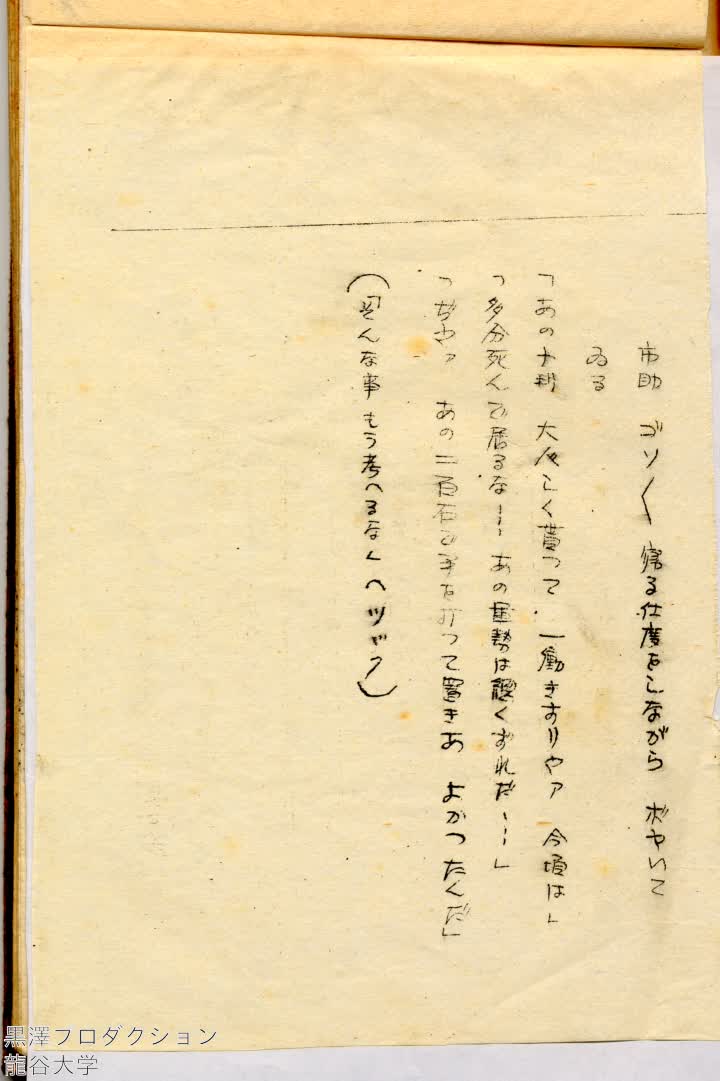 市助 ゴソ〱 帰る仕度をしながら ボヤいて
ゐる
「あの時 大人しく貰つて 一働きすりやア 今頃は」
「多分死んで居るな……あの軍勢は総くずれだ……」
「ぢやア あの二百石で手を打つて置きあ よかつたんだ」
(「そんな事もう考へるな」へヅック)
黒澤プロダクション
龍谷大学